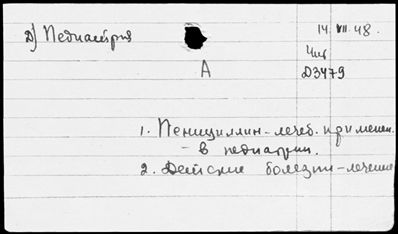 Д) Педиатрия
14. VII. 48.
Чит
А
D3479
1. Пенициллин-лечеб. примен.
- в педиатрии.
2. Детские болезни-лечение